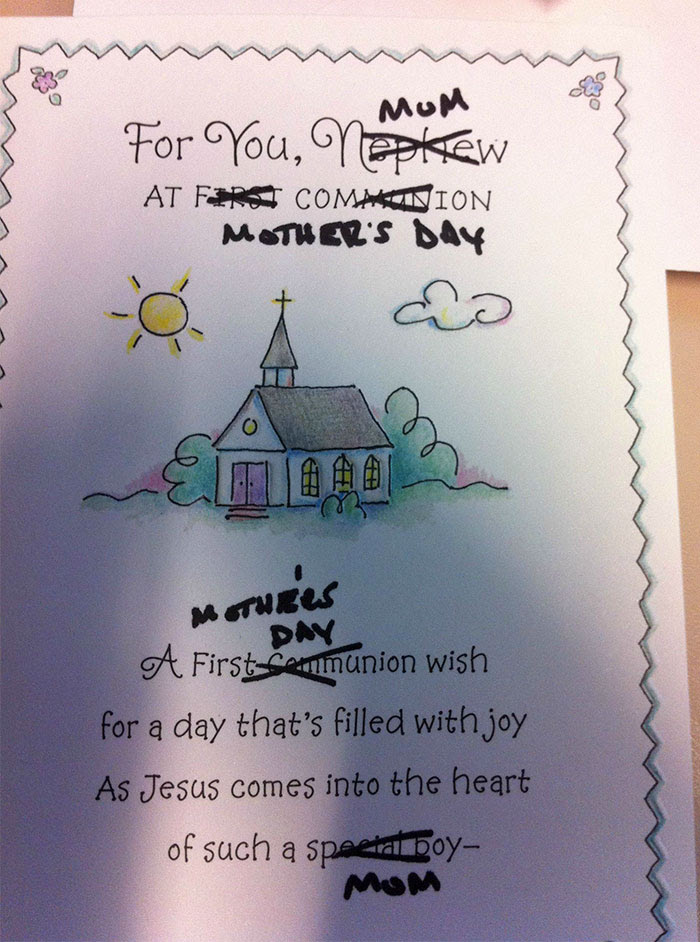 MUM
For You, Nephew
AT FIRST COMMUNION
MOTHER'S DAY
MOTHER'S
DAY
A First Communion wish
for a day that's filled with joy
As Jesus comes into the heart
of such a special boy–
MUM